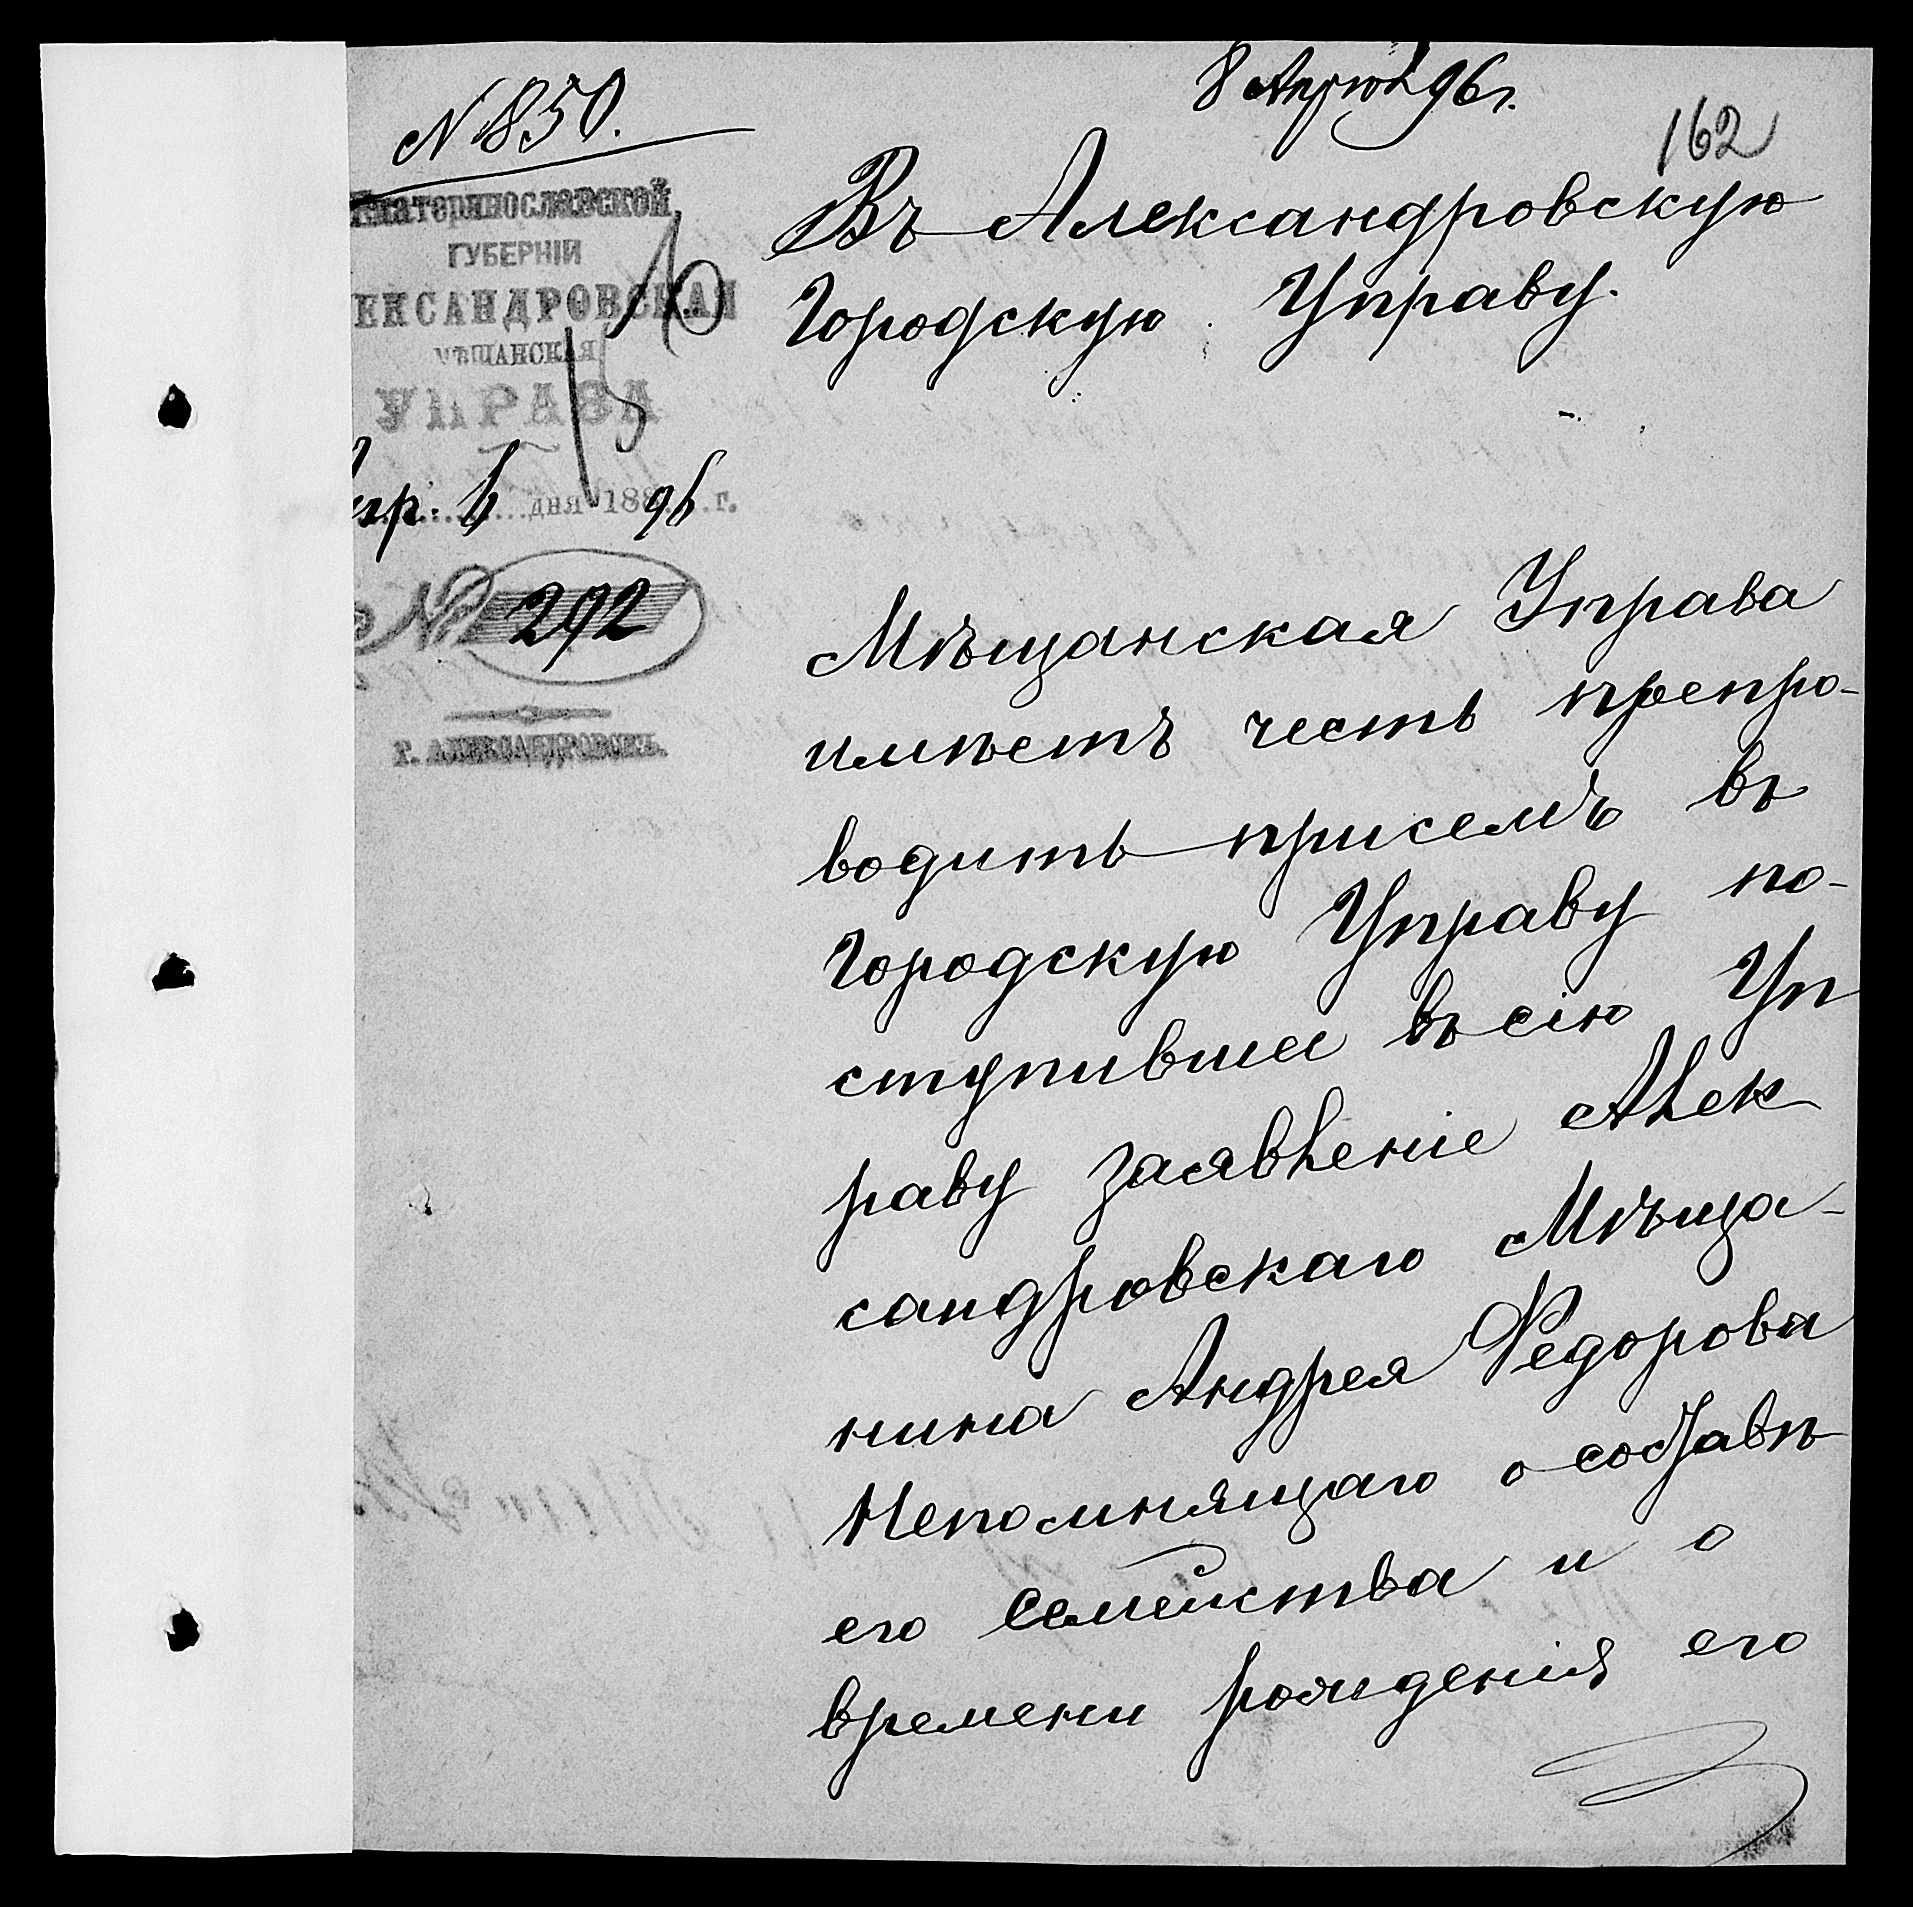 8 Апрѣля 96 г.
162
№ 850.
Екатеринославской
ГУБЕРНІИ
АЛЕКСАНДРОВСКАЯ
МѢЩАНСКАЯ
УПРАВА
Апр. 6 дня 188 96 г.
№ 292
Г. АЛЕКСАНДРОВСКЪ.
Въ Александровскую
Городскую Управу.
Мѣщанская Управа
имѣетъ честь препро-
водить при семъ въ
Городскую Управу по-
ступившее въ сію Уп
раву заявленіе Алек
сандровскаго Мѣща-
нина Андрея Федорова
Непомнящаго о составѣ
его семейства и о
времени рожденія его